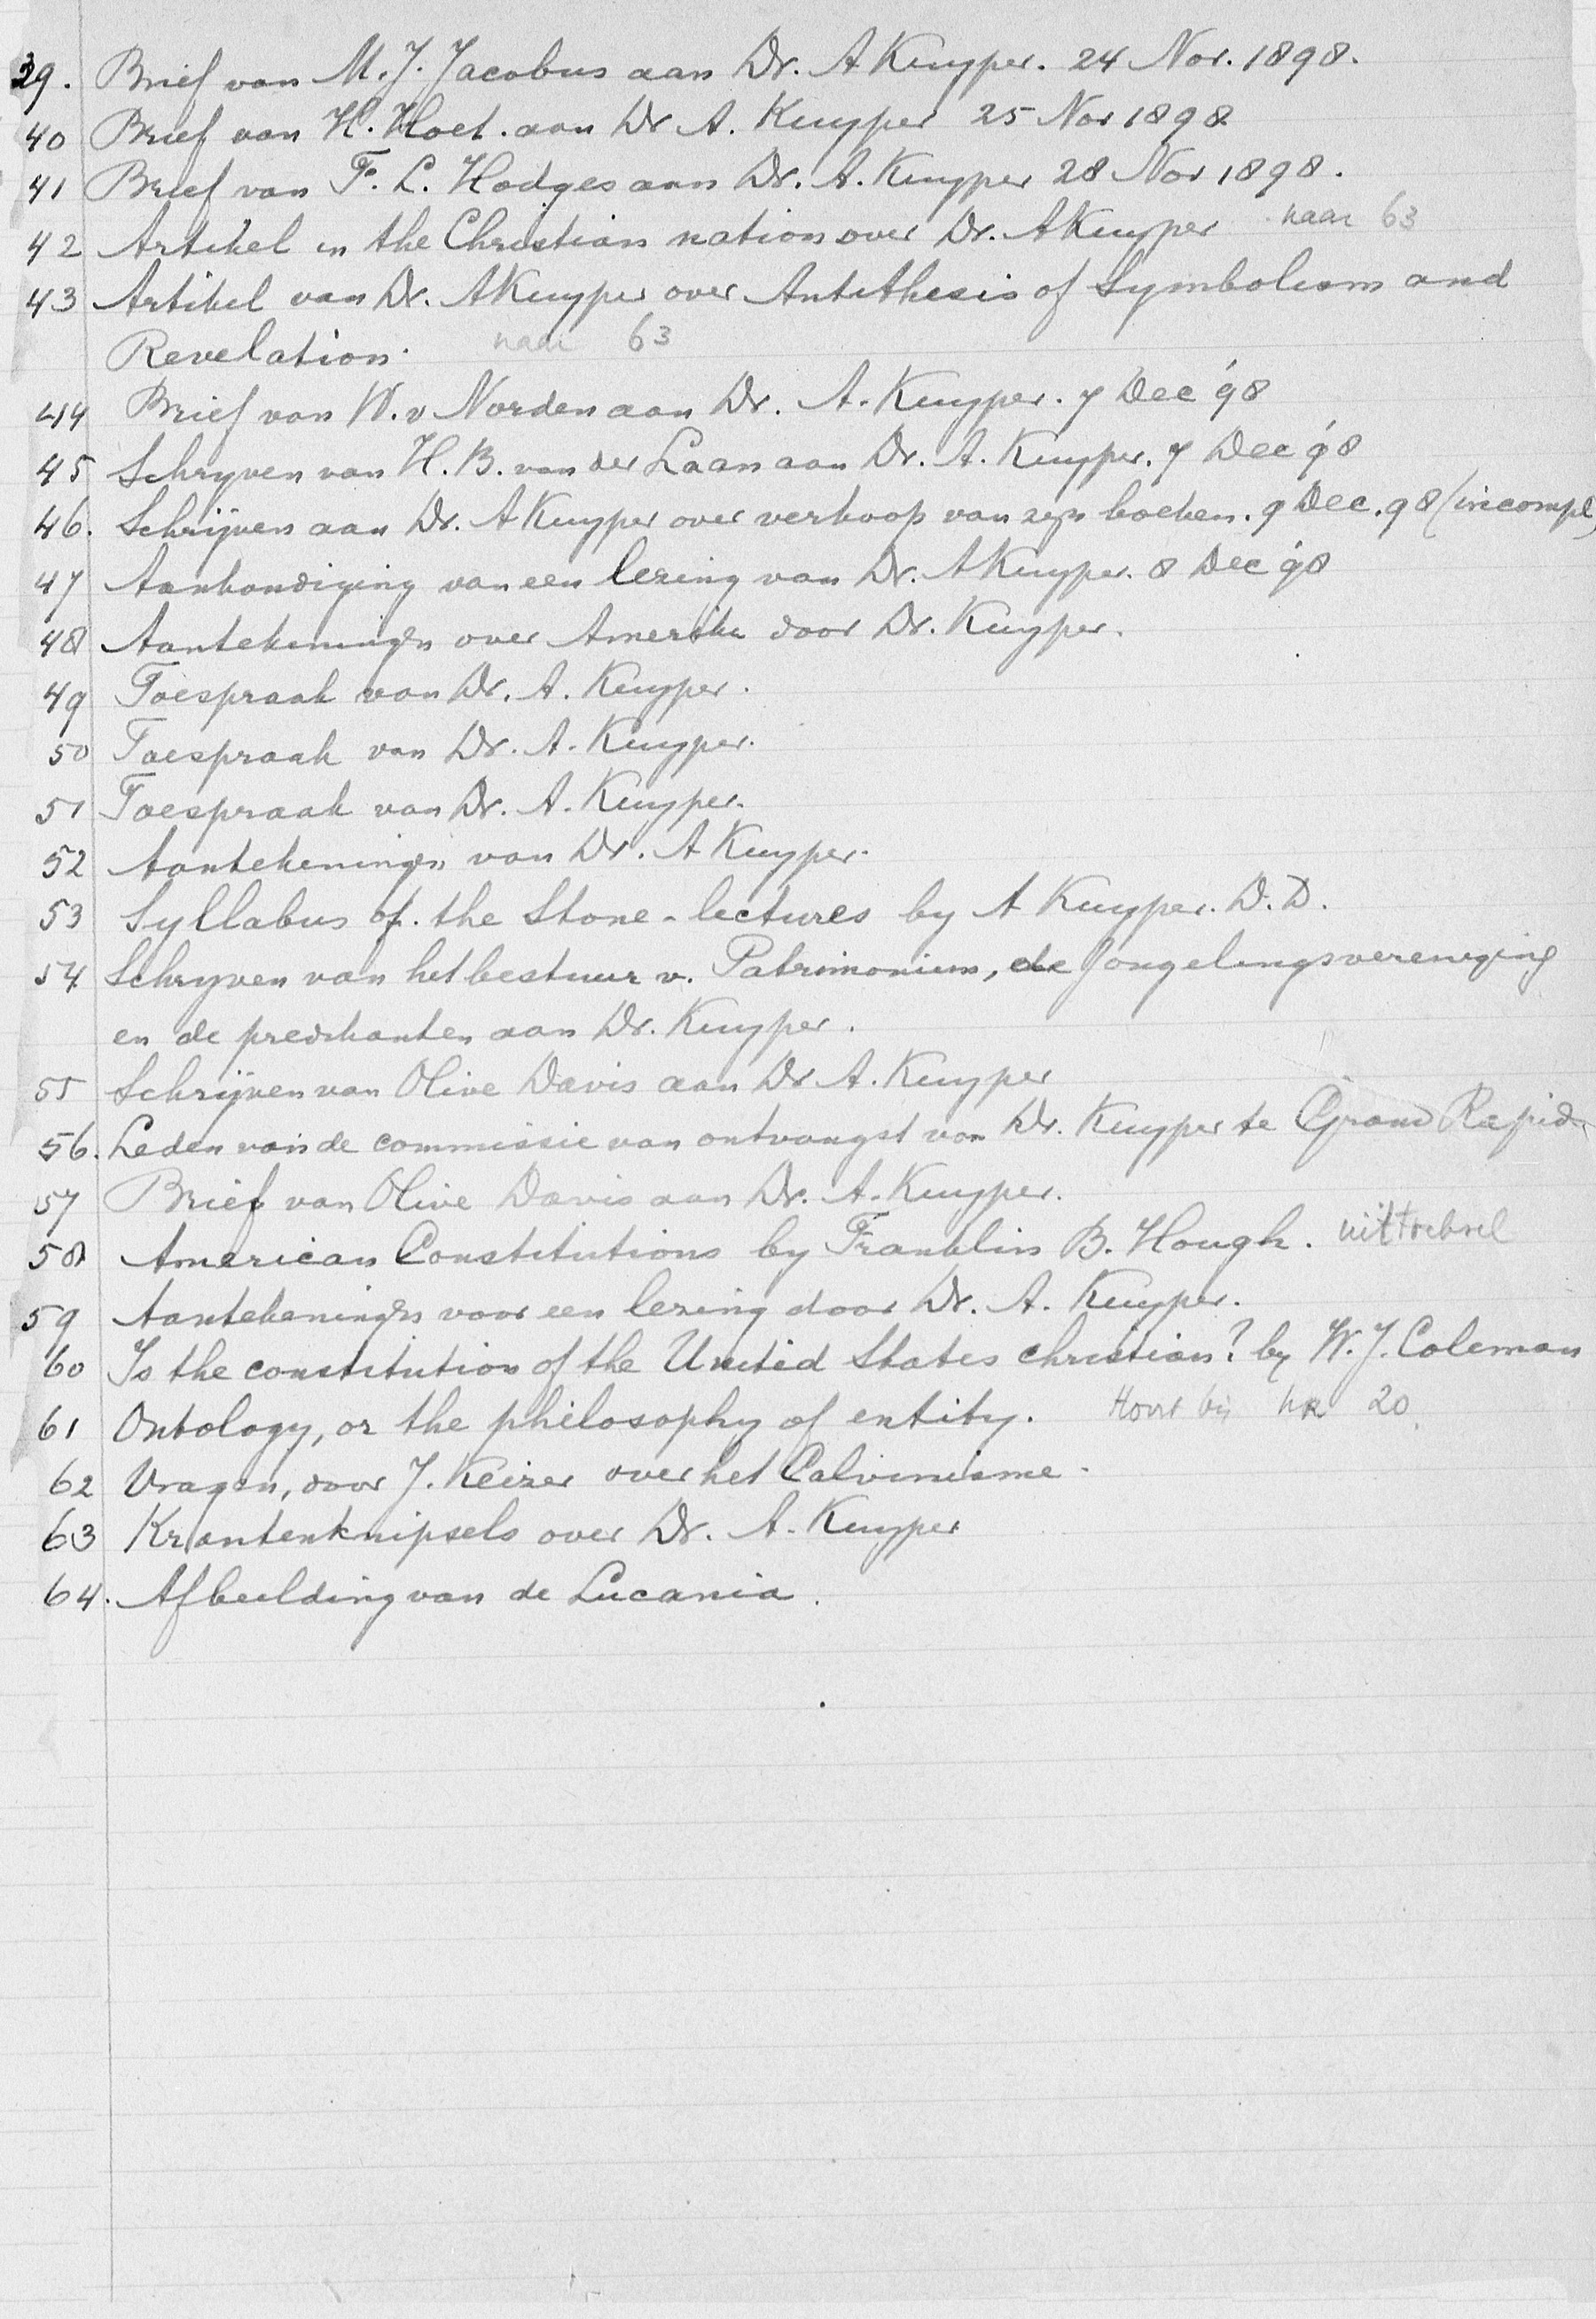 39. Brief van M. J. Jacobus aan Dr. A Kuyper. 24 Nov. 1898.
40 Brief van H. Hoet. aan Dr A. Kuyper 25 Nov 1898
41 Brief van F. L. Hodges aan Dr. A. Kuyper 28 Nov 1898.
42 Artikel in the Christian nation over Dr. A Kuyper naar 63
43 Artikel van Dr. A Kuyper over Antithesis of Symbolism and
Revelation. naar 63
44 Brief van W. v Norden aan Dr. A. Kuyper. 7 Dec '98
45 Schryven van H. B. van der Laan aan Dr. A. Kuyper. 7 Dec '98
46. Schrijven aan Dr. A Kuyper over verkoop van zijn boeken. 9 Dec. 98 (incompl)
47 Aankondiging van een lezing van Dr. A Kuyper. 8 Dec '98
48 Aantekeningen over Amerika door Dr. Kuyper.
49 Toespraak van Dr. A. Kuyper.
50 Toespraak van Dr. A. Kuyper.
51 Toespraak van Dr. A. Kuyper.
52 Aantekeningen van Dr. A Kuyper.
53 Syllabus of. the Stone-lectures by A Kuyper. D.D.
54 Schryven van het bestuur v. Patrimonium, de Jongelingsvereniging
en de predikanten aan Dr. Kuyper.
55 Schrijven van Olive Davis aan Dr A. Kuyper
56. Leden van de commissie van ontvangst van Dr. Kuyper te Grand Rapids
57 Brief van Olive Davis aan Dr. A. Kuyper.
58 American Constitutions by Franklin B. Hough. uittreksel
59 Aantekeningen voor een lezing door Dr. A. Kuyper.
60 Is the constitution of the United States christian? by W. J. Coleman
61 Ontology, or the philosophy of entity. Hoort bij nr 20.
62 Vragen, door J. Keizer over het Calvinisme.
63 Krantenknipsels over Dr. A. Kuyper
64. Afbeelding van de Lucania.